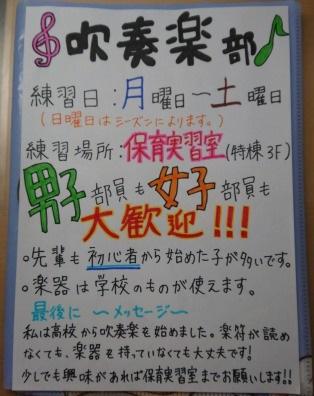 吹奏楽部
練習日:月曜日~土曜日
(日曜日はシーズンによります。)
練習場所:保育実習室(特棟3F)
男子部員も女子部員も
大歓迎!!!
○先輩も初心者から始めた子が多いです。
○楽器は学校のものが使えます。
最後に ~メッセージ~
私は高校から吹奏楽を始めました。楽符が読め
なくても、楽器を持っていなくても大丈夫です!
少しでも興味があれば保育実習室までお願いします!!